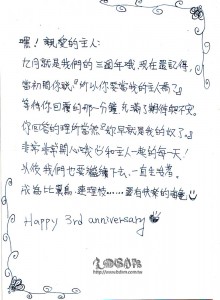 嘿！親愛的主人：
九月就是我們的三週年哦，現在還記得，
當初問你說，『所以你要當我的主人嗎？』
等待你回覆的那一分鐘，充滿期待和不安。
你回答的理所當然『你早就是我的奴了。』
非常非常開心哦！和主人一起的每一天！
以後我們也要繼續下去，一直走唷。
成為比翼鳥、連理枝……還有快樂的
Happy 3rd anniversary